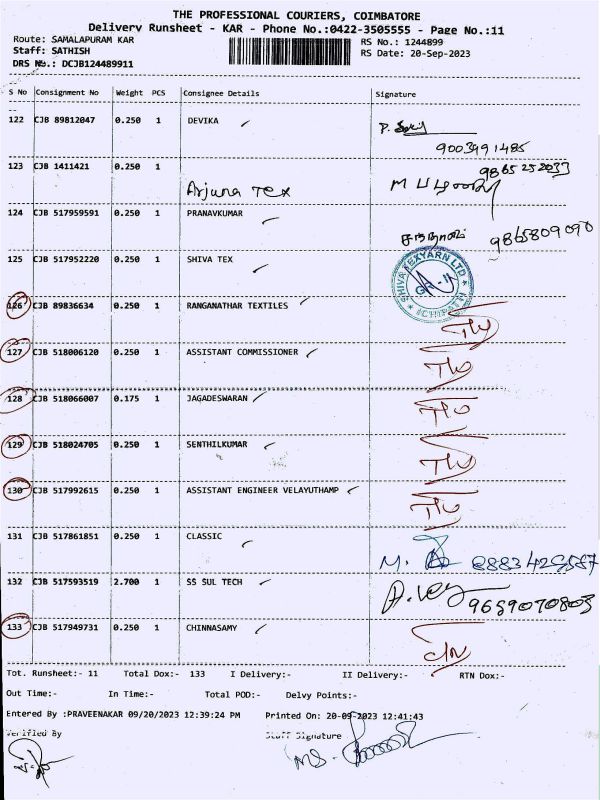 THE PROFESSIONAL COURIERS, COIMBATORE
Delivery Runsheet - KAR - Phone No.:0422-3505555 - Page No.:11
Route: SAMALAPURAM KAR RS No.: 1244899
Staff: SATHISH RS Date: 20-Sep-2023
DRS No.: DCJB124489911
S No Consignment No Weight PCS Consignee Details Signature
122 CJB 89812047 0.250 1 DEVIKA
9003991485
123 CJB 1411421 0.250 1 9865252033
Arjuna Tex
124 CJB 517959591 0.250 1 PRANAVKUMAR
9865809090
125 CJB 517952220 0.250 1 SHIVA TEX
SHIVA TEXYARN LTD
126 CJB 89836634 0.250 1 RANGANATHAR TEXTILES
127 CJB 518006120 0.250 1 ASSISTANT COMMISSIONER
128 CJB 518066007 0.175 1 JAGADESWARAN
129 CJB 518024705 0.250 1 SENTHILKUMAR
130 CJB 517992615 0.250 1 ASSISTANT ENGINEER VELAYUTHAMP
131 CJB 517861851 0.250 1 CLASSIC
132 CJB 517593519 2.700 1 SS SUL TECH
9659070803
133 CJB 517949731 0.250 1 CHINNASAMY
Tot. Runsheet:- 11 Total Dox:- 133 I Delivery:- II Delivery:- RTN Dox:-
Out Time:- In Time:- Total POD:- Delvy Points:-
Entered By :PRAVEENAKAR 09/20/2023 12:39:24 PM Printed On: 20-09-2023 12:41:43
Verified By Staff Signature